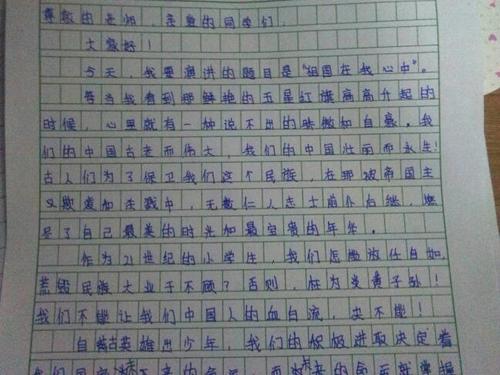 尊敬的老师，亲爱的同学们：
大家好！
今天，我要演讲的题目是“祖国在我心中”。
每当我看到那鲜艳的五星红旗高高升起的
时候，心里就有一种说不出的骄傲和自豪。我
们的中国古老而伟大，我们的中国壮丽而永生！
古人们为了保卫我们这个民族，在那被帝国主
义欺凌和杀戮中，无数仁人志士前仆后继，燃
尽了自己最美的时光和最宝贵的年华。
作为21世纪的小学生，我们怎能放任自如，
荒废民族大业于不顾？否则，枉为炎黄子孙！
我们不能让我们中国人的血白流，决不能！
自古英雄出少年，我们的积极进取决定着
我们国家未来的命运，而未来的命运就掌握